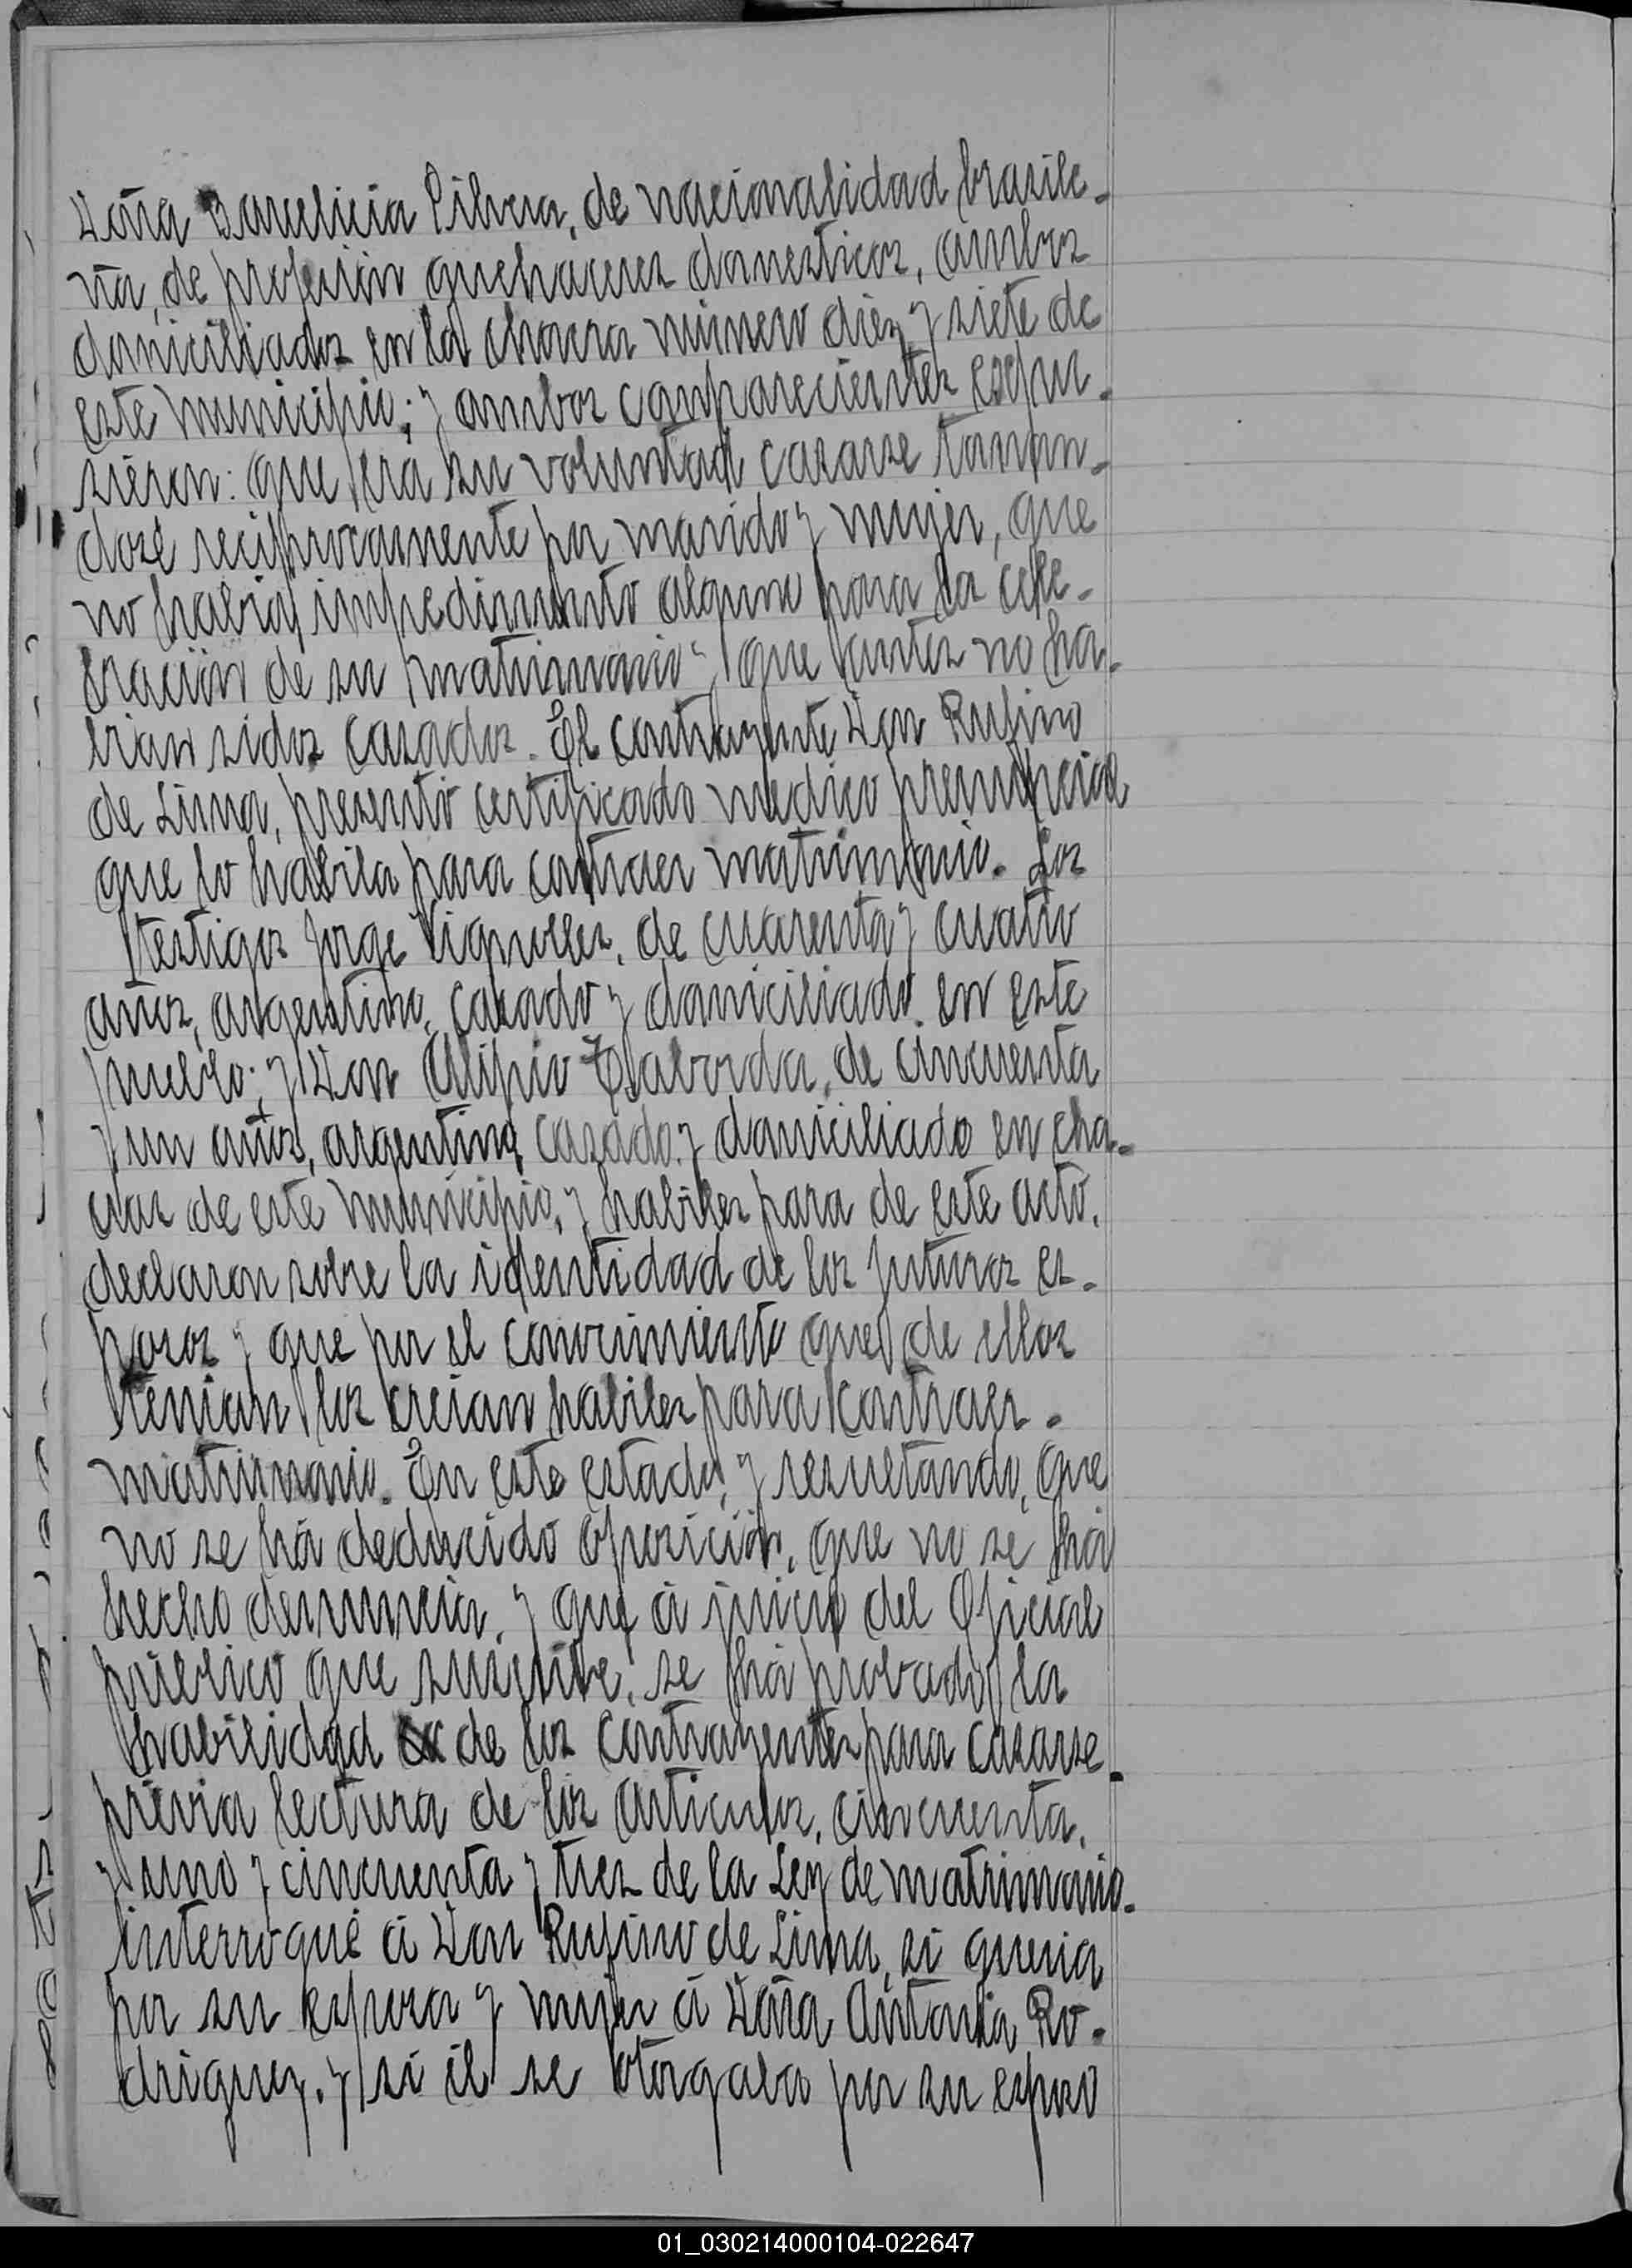 Doña Darcelicia Silvera, de nacionalidad brasile-
ña, de profesión quehaceres domesticos, ambos
domiciliados en la chacra número diez y siete de
este municipio; y ambos comparecientes expu-
sieron: que era su voluntad casarse toman-
dose reciprocamente por marido y mujer, que
no habia impedimento alguno para la cele-
bración de su matrimonio y que antes no ha-
bian sidos casados. El contrayente Don Rufino
de Lima, presentó certificado medico prenupcial
que lo habila para contraer matrimonio. Los
testigos Jorge Vignolles, de cuarenta y cuatro
años, argentino, casado y domiciliado en este
pueblo; y Don Alipio Taborda, de cincuenta
y un años, argentino, casado y domiciliado en cha-
cras de este municipio, y habiles para de este acto.
declaron sobre la identidad de los futuros es-
posos y que por el conocimiento que de ellos
tenian los creian habiles para contraer.
matrimonio. En este estado, y resultando, que
no se há deducido oposición, que no se há
hecho denuncia, y que á juicio del Oficial
público que suscribe, se há probado la
habilidad de los contrayentes para casarse-
prévia lectura de los articulos, cincuenta,
y uno y cincuenta y tres de la Ley de matrimonio-
interrogué á Don Rufino de Lima, si queria
por su esposa y mujer á Doña Antonia Ro-
driguez, y si él se otorgaba por su esposo
01_030214000104-022647